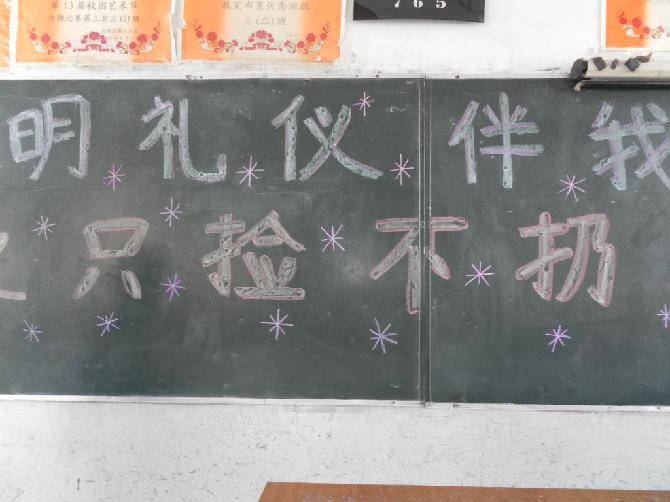 第13届校园艺术节
体操比赛第三名三(2)班
教室布置优秀班级
三(二)班
765
明礼仪 伴我
只捡不扔